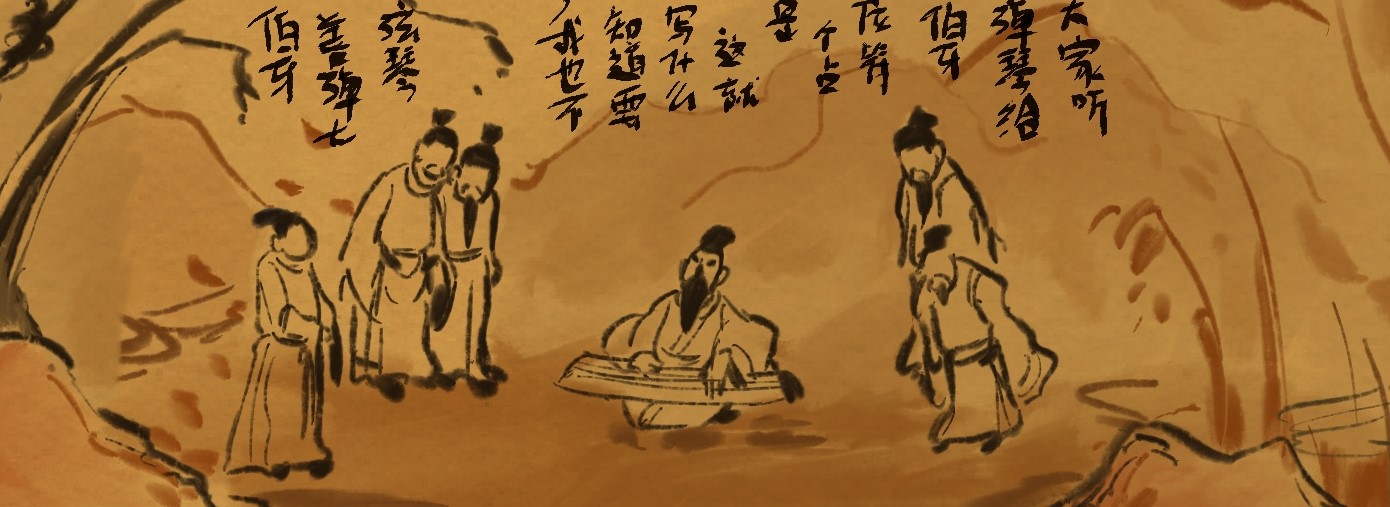 伯牙
善弹七
弦琴
我也不
知道要
写什么
这就
是
个占
位符
伯牙
弹琴给
大家听